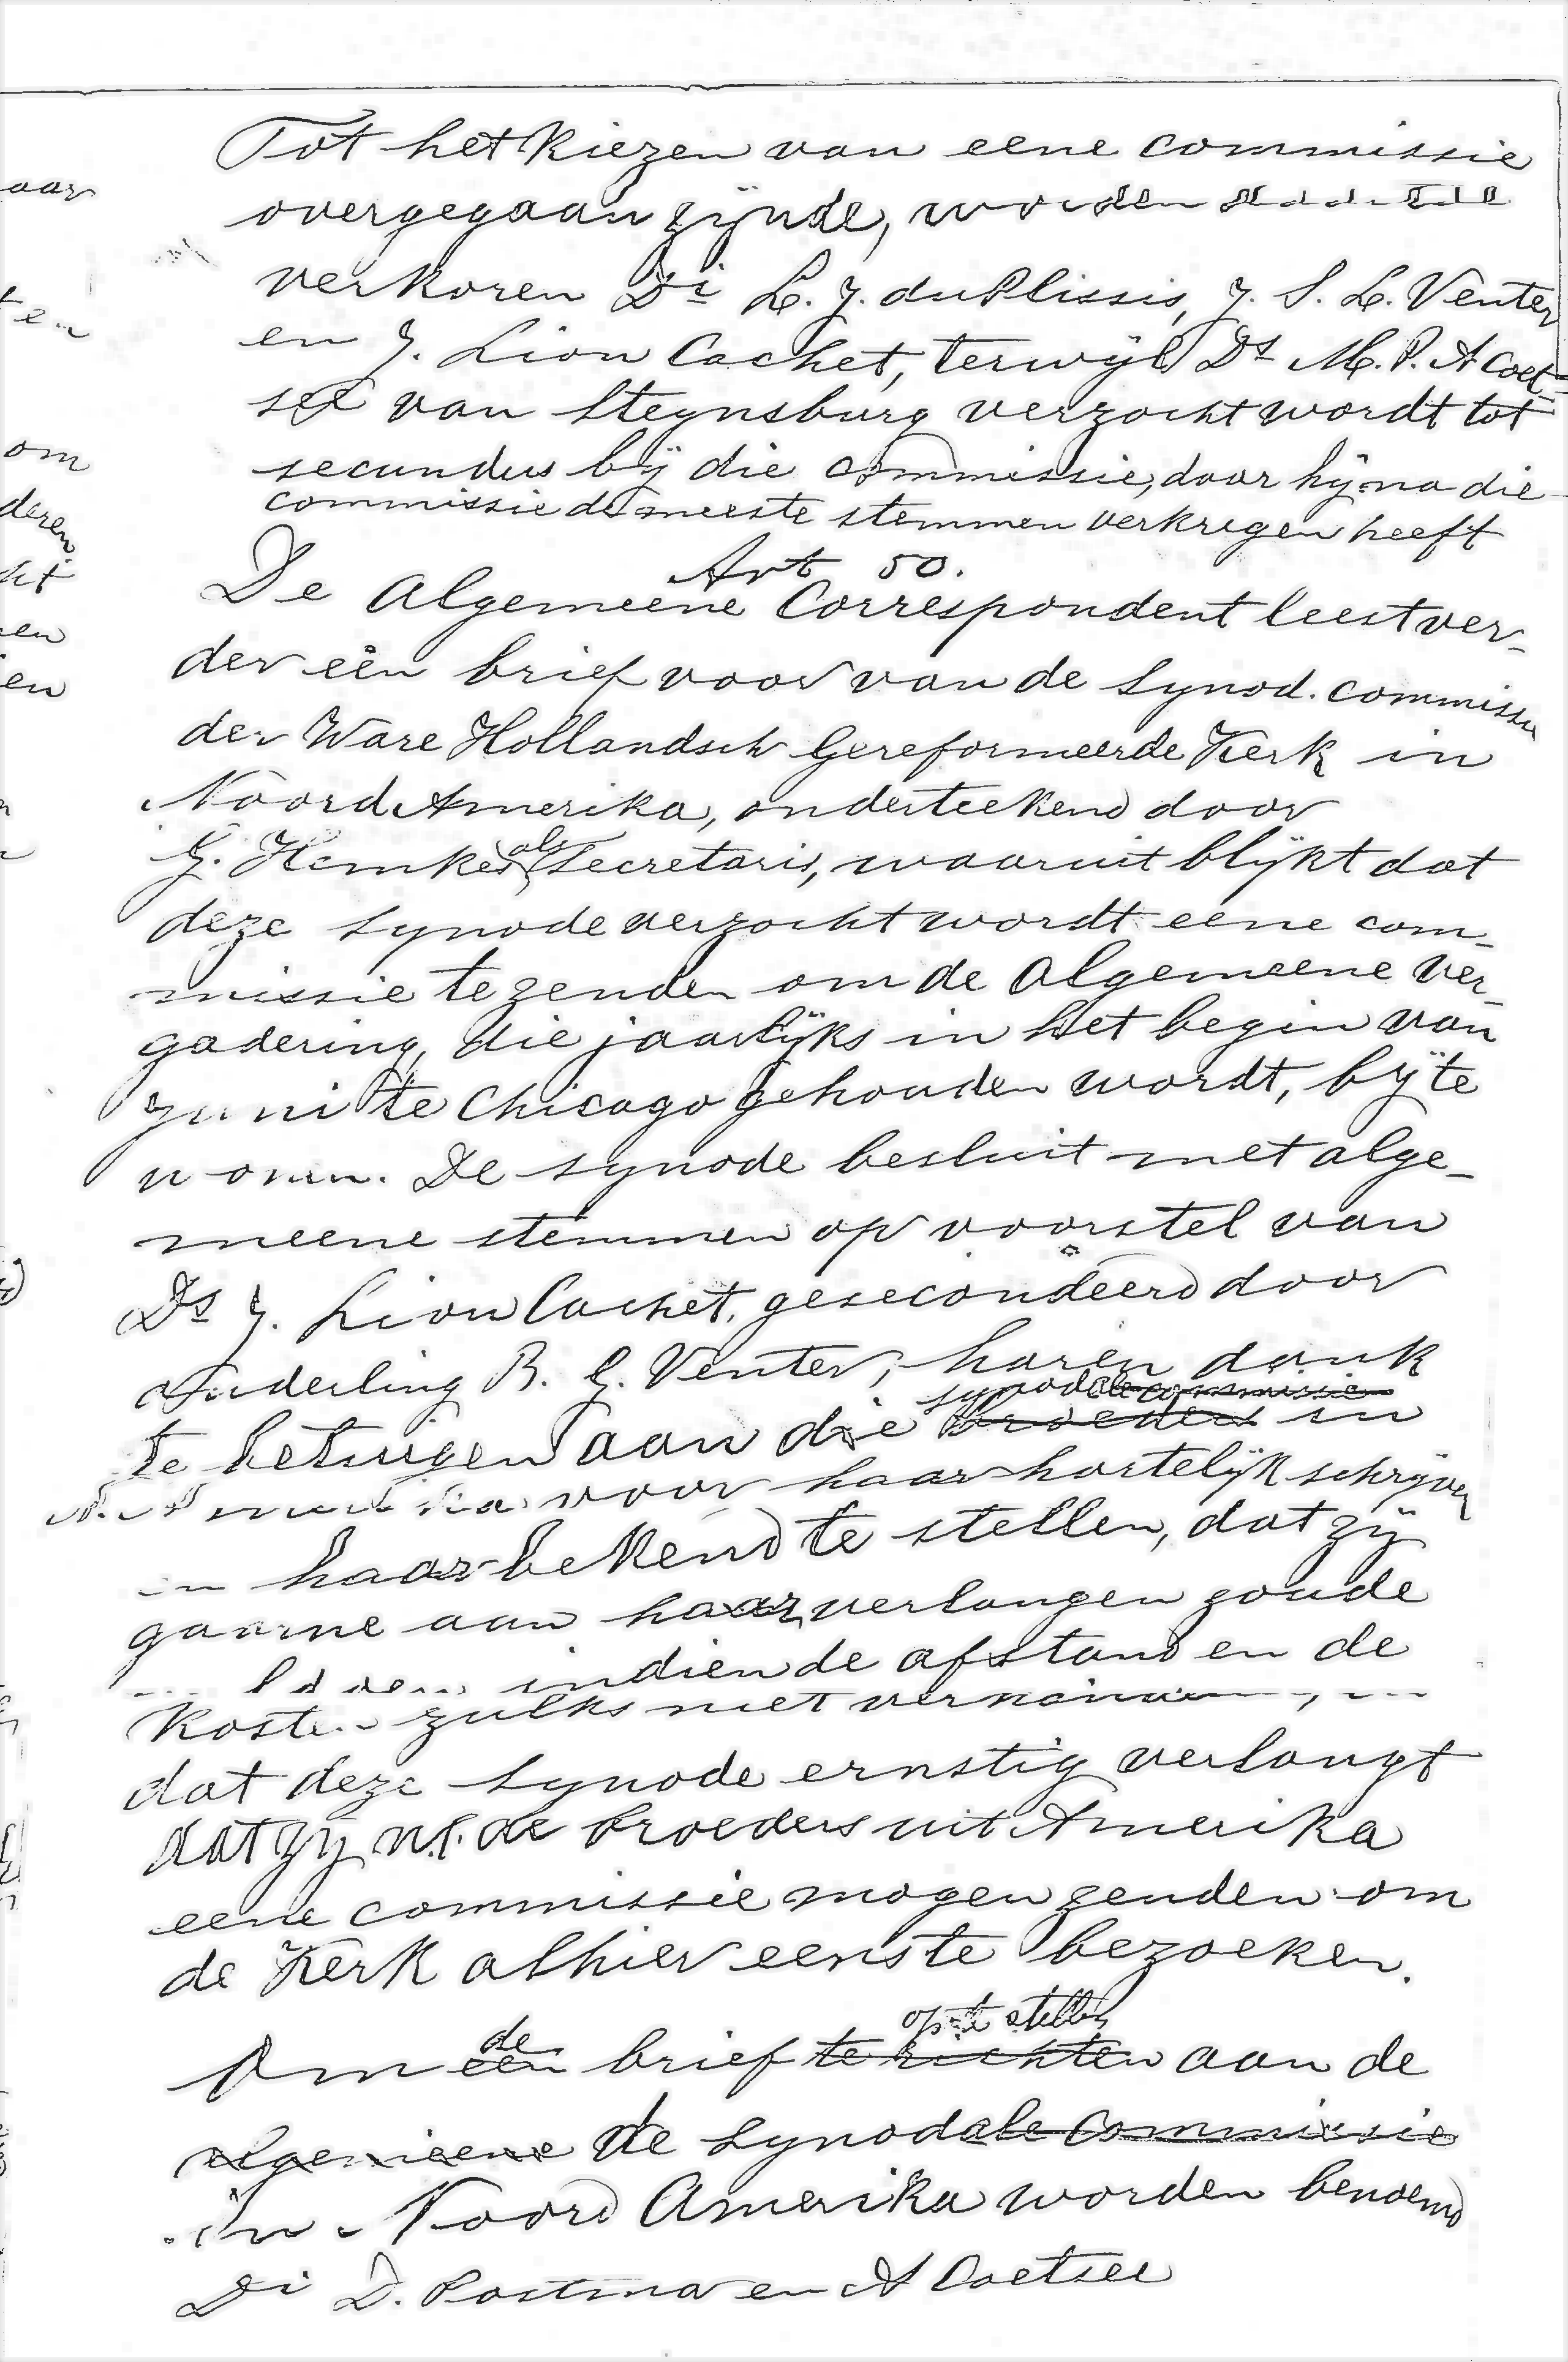 Tot het kiezen van eene commissie
overgegaan zijnde, worden
verkoren Di L. J. du Plissis, J. S. L. Venter
en J. Lion Cachet, terwijl Ds M. P. A Coet=
see van Steynsburg verzocht wordt tot
secundus bij die commissie, daar hij na die
commissie de meeste stemmen verkregen heeft
Art 50.
De Algemeene Correspondent leest ver-
der een brief voor van de Synod. commissie
der Ware Hollandsch Gereformeerde Kerk in
Noord Amerika, onderteekend door
G. Hemkes als Secretaris, waaruit blijkt dat
deze Synode verzocht wordt eene com-
missie te zenden om de Algemeene Ver-
gadering, die jaarlijks in het begin van
Juni te Chicago gehouden wordt, bij te
wonen. De synode besluit met alge-
meene stemmen op voorstel van
Ds J. Lion Cachet, gesecondeerd door
Ouderling B. G. Venter, haren dank
synodale commissie
te betuigen aan die broeders in
N. Amerika voor haar hartelijk schrijven
en haar bekend te stellen, dat zij
gaarne aan haar verlangen zoude
indien de afstand en de
kosten zulks niet
dat deze Synode ernstig verlangt
dat zij n.l. de broeders uit Amerika
eene commissie mogen zenden om
de Kerk alhier eens te bezoeken.
de op te stellen
Om een brief te richten aan de
algemeene de Synodale Commissie
in Noord Amerika worden benoemd
Di D. Postma en A Coetsee
aar
ten
om
deren
en
en